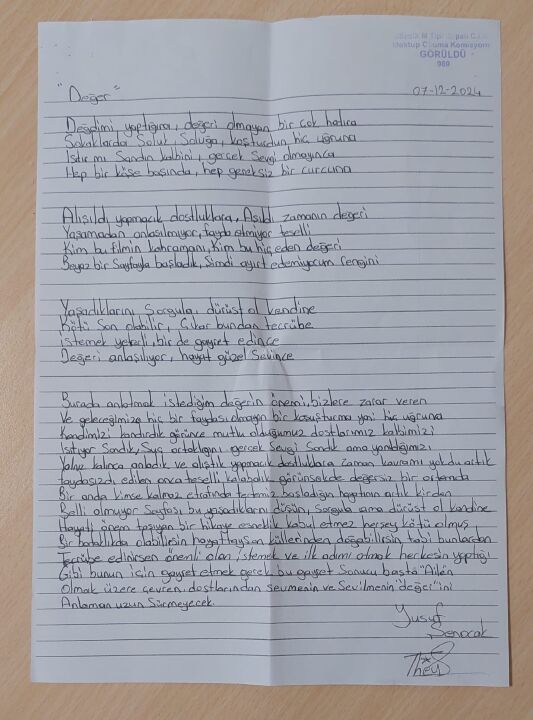 Mektup Okuma Komisyonu
GÖRÜLDÜ
989
"Değer"
07-12-2024
Değdimi yaptığına, değeri olmayan bir çok hatıra
Sokaklarda Soluk, Soluğa, koşturdun hiç uğruna
Isıtır mı Sandın kalbini, gerçek Sevgi olmayınca
Hep bir köşe başında, hep gereksiz bir curcuna
Alışıldı yapmacık dostluklara, Aşıldı zamanın değeri
Yaşamadan anlaşılmıyor, fayda etmiyor teselli
Kim bu filmin kahramanı, Kim bu hiç eden değeri
Beyaz bir Sayfayla başladık, Şimdi ayırt edemiyorum rengini
Yaşadıklarını Sorgula, dürüst ol kendine
Kötü Son olabilir, Çıkar bundan tecrübe
İstemek yeterli, bir de gayret edince
Değeri anlaşılıyor, hayat güzel Sevince
Burada anlatmak istediğim değerin önemi, bizlere zarar veren
Ve geleceğimize hiç bir faydası olmayan bir koşuşturma yani hiç uğruna
Kendimizi kandırdık görünce mutlu olduğumuz dostlarımız kalbimizi
Isıtıyor Sandık, Suç ortaklığını gerçek Sevgi Sandık ama yanıldığımızı
Yalnız kalınca anladık ve alıştık yapmacık dostluklara zaman kavramı yoktu artık
faydasızdı edilen onca teselli kalabalık görünsekde değersiz bir ortamda
Bir anda kimse kalmaz etrafında tertemiz başladığın hayatının artık kirden
Belli olmuyor Sayfası bu yaşadıklarını düşün, Sorgula ama dürüst ol kendine
Hayati önem taşıyan bir hikaye esneklik kabul etmez herşey kötü olmuş
Bir bataklıkda olabilirsin hayattaysan küllerinden doğabilirsin tabi bunlardan
Tecrübe edinirsen önemli olan istemek ve ilk adımı atmak herkesin yaptığı
Gibi bunun için gayret etmek gerek bu gayret Sonucu başta "Ailen
Olmak üzere çevren, dostlarından sevmenin ve Sevilmenin "değeri"ni
Anlaman uzun Sürmeyecek.
Yusuf
Şenocak